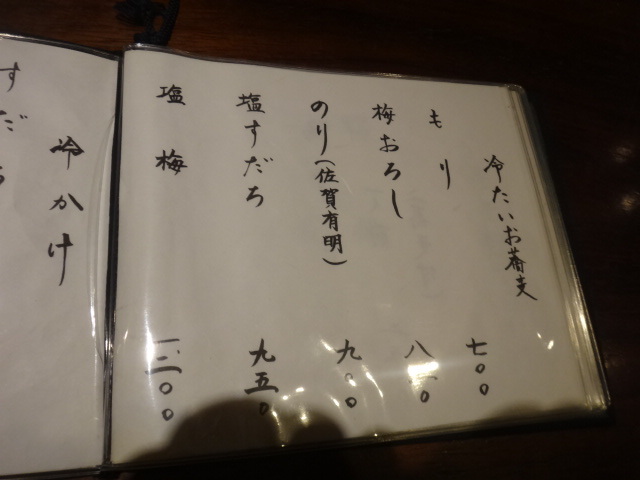 冷たいお蕎麦
もり 七〇〇
梅おろし
のり(佐賀有明) 九〇〇
塩すだち 九五〇
塩梅
冷かけ
すだち